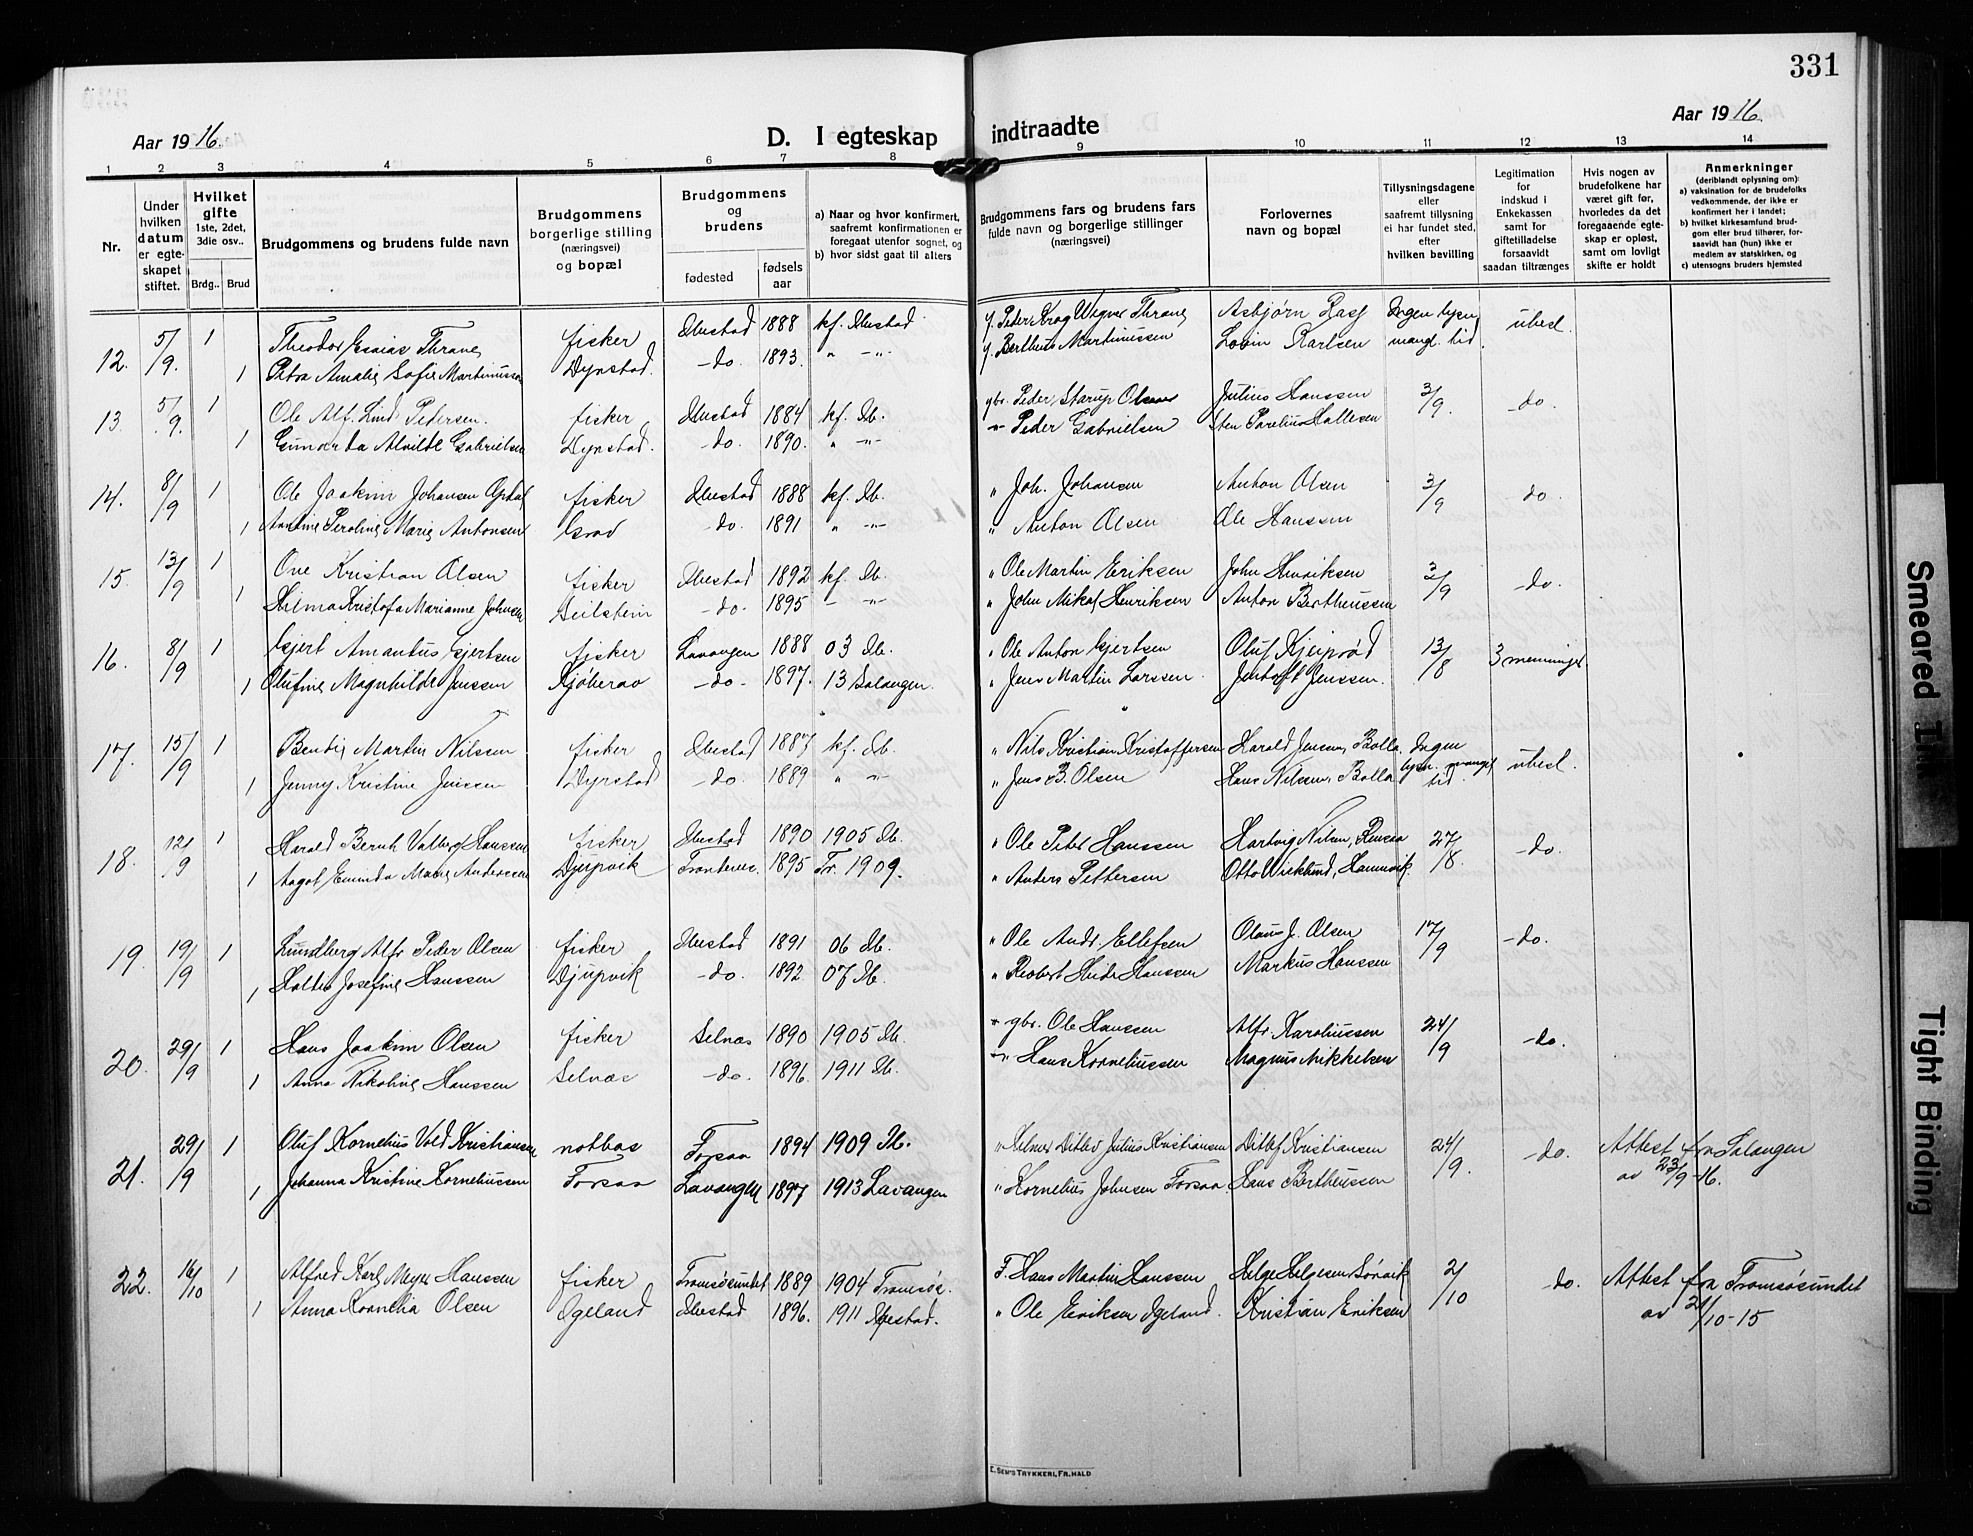 331
Aar 1916.
D. I egteskap indtraadte
Aar 1916.
1 2 3 4 5 6 7 8 9 10 11 12 13 14
Nr.
Under hvilken datum er egteskapet stiftet.
Hvilket gifte 1ste, 2det, 3die osv..
Brdg.. Brud
Brudgommens og brudens fulde navn
Brudgommens borgerlige stilling (næringsvei) og bopæl
Brudgommens og brudens
fødested
fødsels aar
a) Naar og hvor konfirmert, saafremt konfirmationen er foregaat utenfor sognet, og
b) hvor sidst gaat til alters
Brudgommens fars og brudens fars fulde navn og borgerlige stillinger (næringsvei)
Forlovernes navn og bopæl
Tillysningsdagene eller saafremt tillysning ei har fundet sted, efter hvilken bevilling
Legitimation for indskud i Enkekassen samt for giftetilladelse forsaavidt saadan tiltrænges
Hvis nogen av brudefolkene har været gift før, hvorledes da det foregaaende egteskap er opløst, samt om lovligt skifte er holdt
Anmerkninger
(deriblandt oplysning om):
a) vaksination for de brudefolks vedkommende, der ikke er konfirmert her i landet;
b) hvilket kirkesamfund brudgom eller brud tilhører, forsaavidt han (hun) ikke er medlem av statskirken, og
c) utensogns bruders hjemsted
12. 5/9. 1 Theodor Esaias Thrane fisker Ibestad 1888 kf. Ibestad f. Peder Krog Wigner Thrane Asbjørn Ingen lysn. ubesl.
1 Petra Amalie Sofie Martinussen Dyrstad. -do. 1893. " -"- f. Bertheus Martinussen Karlsen mangl. tid.
13. 5/9. 1 Ole Alf. Lind Pedersen. fisker Ibestad 1884 kf. Ib. gbr. Peder Starup Olsen Julius Hanssen 3/9. -do.
1 Gunarda Alvilde Gabrielsen Dyrstad. -do. 1890. " -"- -"- Peder Gabrielsen Sten
14. 8/9 1 Ole Joakim Johansen fisker Ibestad 1888 kf. Ib. " Joh. Johansen Anton Olsen 3/9 do.
1 Antine Peroline Marie Antonsen Grov -do. 1891 " -"- " Anton Olsen Ole Hanssen
15. 13/9 1 Ove Kristian Olsen fisker Ibestad 1892 kf. Ib. " Ole Martin Eriksen John Henriksen 3/9 -do.
1 Hilma Kristofa Marianne Johnsen -do. 1895 - -"- " John Mikal Henriksen Anton Bertheussen
16. 8/9 1 Gjert Amantus Gjertsen fisker Lavangen 1888 03 Ib. " Ole Anton Gjertsen Oluf 13/8 3 menninger
1 Olufine Magnhilde Jenssen -do- 1897. 13 Salangen. " Jens Martin Larssen Jentoft Jenssen.
17. 15/9 1 Bendix Martin Nilssen fisker Ibestad 1887 kf. Ib. " Nils Kristian Kristoffersen Harald Jensen, Bolla. Ingen lysn. mangel tid ubesl.
1 Jenny Kristine Jenssen Dyrstad -do. 1889 " -"- " Jens B. Olsen Hans Nilsen, Bolla
18. 12/9 1 Harald Bernh. Valberg Hanssen fisker Ibestad 1890 1905 Ib. " Ole Peter Hanssen Hartvig Nilsen, Rensaa 27/8. -do.
1 Aagot Marie Anderssen Djupvik Trondenes. 1895 Tr. 1909. " Anders Pettersen Otto Wicklund, Hamnvik.
19. 19/9 1 Lundberg Alfr. Peder Olsen fisker Ibestad 1891 06 Ib. " Ole Andr. Ellefsen Olaus J. Olsen 17/9 -do.
1 Josefine Hanssen Djupvik -do. 1892 07 Ib. " Robert Heide Hanssen Markus Hanssen
20. 29/9 1 Hans Joakim Olsen fisker Selnæs 1890 1905 Ib. " gbr. Ole Hanssen Alfr. Karoliussen 24/9 -do.
1 Anna Nikoline Hanssen Selnæs -do. 1896. 1911 Ib. -"- Hans Korneliussen Magnus Mikkelsen
21. 29/9 1 Oluf Kornelius Vold Kristiansen notbas Forsaa 1894 1909 Ib. " Ditlev Julius Kristiansen Ditlef Kristiansen 24/9. -do. Attest fra Salangen
1 Johanna Kristine Korneliussen Forsaa Lavangen 1897 1913 Lavangen " Kornelius Johnsen Forsaa. Hans Bertheussen av 23/9-16.
22. 16/10 1 Alfred Karl Meyer Hanssen fisker Tromsøsundet 1889 1904 Tromsøs. F. Hans Martin Hanssen Helge Helgesen Sørvik 2/10 do. Attest fra Tromsøsundet
1 Anna Kornelia Olsen Igeland Ibestad 1896. 1911 Ibestad. " Ole Eriksen Igeland. Kristian Eriksen av 21/10-15
E. SEM'S TRYKKERI, FR.HALD
Smeared Ink
Tight Binding